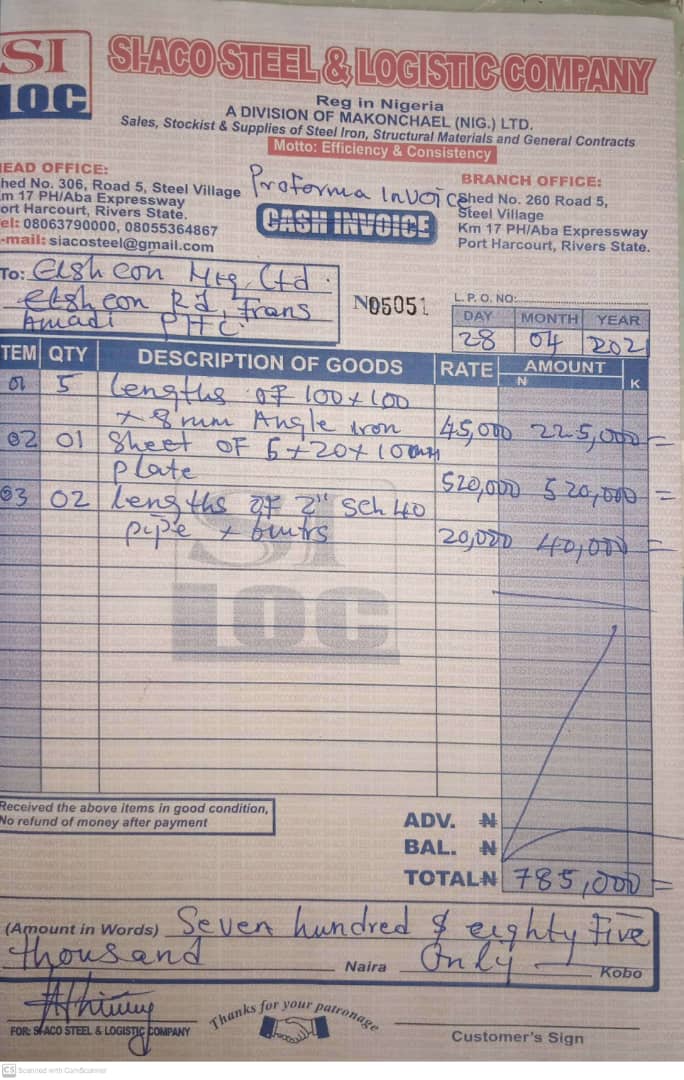 SI
IOC
SI-ACO STEEL & LOGISTIC COMPANY
Reg in Nigeria
A DIVISION OF MAKONCHAEL (NIG.) LTD.
Sales, Stockist & Supplies of Steel Iron, Structural Materials and General Contracts
Motto: Efficiency & Consistency
EAD OFFICE:
hed No. 306, Road 5, Steel Village
m 17 PH/Aba Expressway
ort Harcourt, Rivers State.
el: 08063790000, 08055364867
-mail: siacosteel@gmail.com
Proforma Invoice
CASH INVOICE
BRANCH OFFICE:
Shed No. 260 Road 5,
Steel Village
Km 17 PH/Aba Expressway
Port Harcourt, Rivers State.
To: Elshcon Ltd.
Elshcon Rd, Trans
Amadi PHC
No 05051
L.P.O. NO:
DAY MONTH YEAR
28 04 202
TEM QTY DESCRIPTION OF GOODS RATE AMOUNT
N K
01 5 Lengths of 100 x 100
x 8mm Angle iron 45,000 225,000=
02 01 Sheet OF 5 x 20 x 10mm
plate 520,000 520,000=
03 02 lengths of 2" Sch 40
pipe x 6mtrs 20,000 40,000=
SI
IOC
Received the above items in good condition,
No refund of money after payment
ADV. ₦
BAL. ₦
TOTAL₦ 785,000=
(Amount in Words) Seven hundred & eighty Five
thousand Naira Only Kobo
Thanks for your patronage
FOR: SI-ACO STEEL & LOGISTIC COMPANY
Customer's Sign
CS Scanned with CamScanner